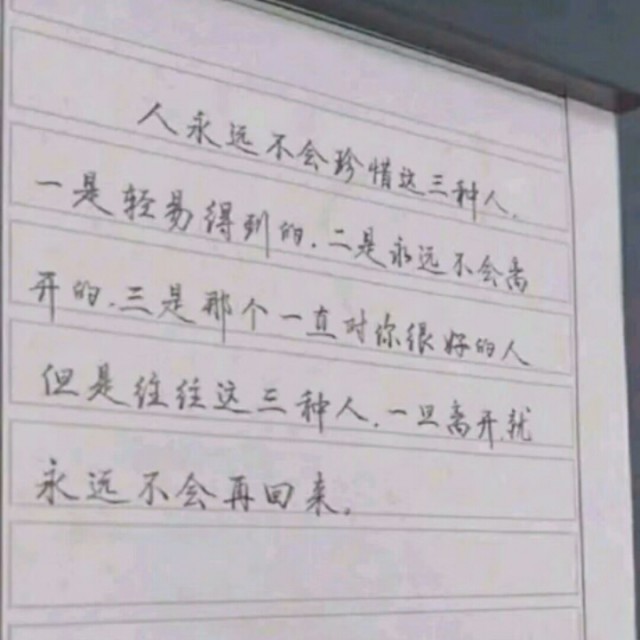 人永远不会珍惜这三种人.
一是轻易得到的.二是永远不会离
开的.三是那个一直对你很好的人
但是往往这三种人.一旦离开就
永远不会再回来。